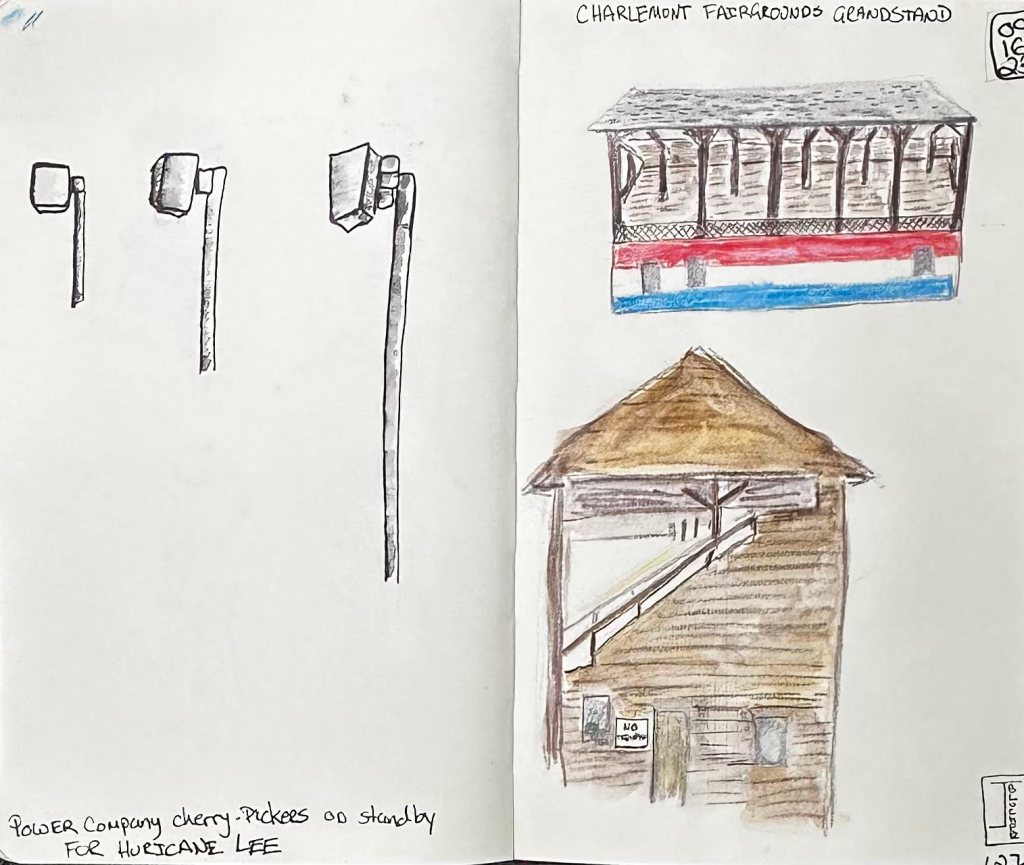 POWER COMPANY CHERRY-PICKERS ON STANDBY
FOR HURICANE LEE
CHARLEMONT FAIRGROUNDS GRANDSTAND
09
16
23
NO